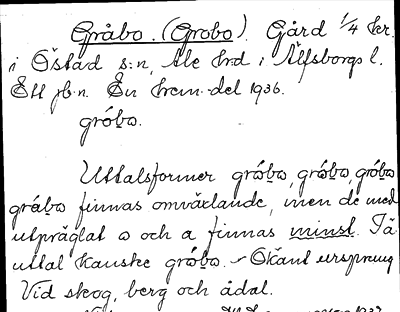 Gråbo. (Grobo). Gård 1/4 kr.
i Östad s:n, Ale hrd i Älfsborgs l.
Ett jb.n. En hem.del 1936.
gróbɷ.
Uttalsformer gróbɷ, gróbɷ, góbɷ
grábɷ finnas omväxlande, men de med
utpräglat o och a finnas minst. Tä
uttal kanske gróbɷ. - Okänt ursprung
Vid skog, berg och ådal.